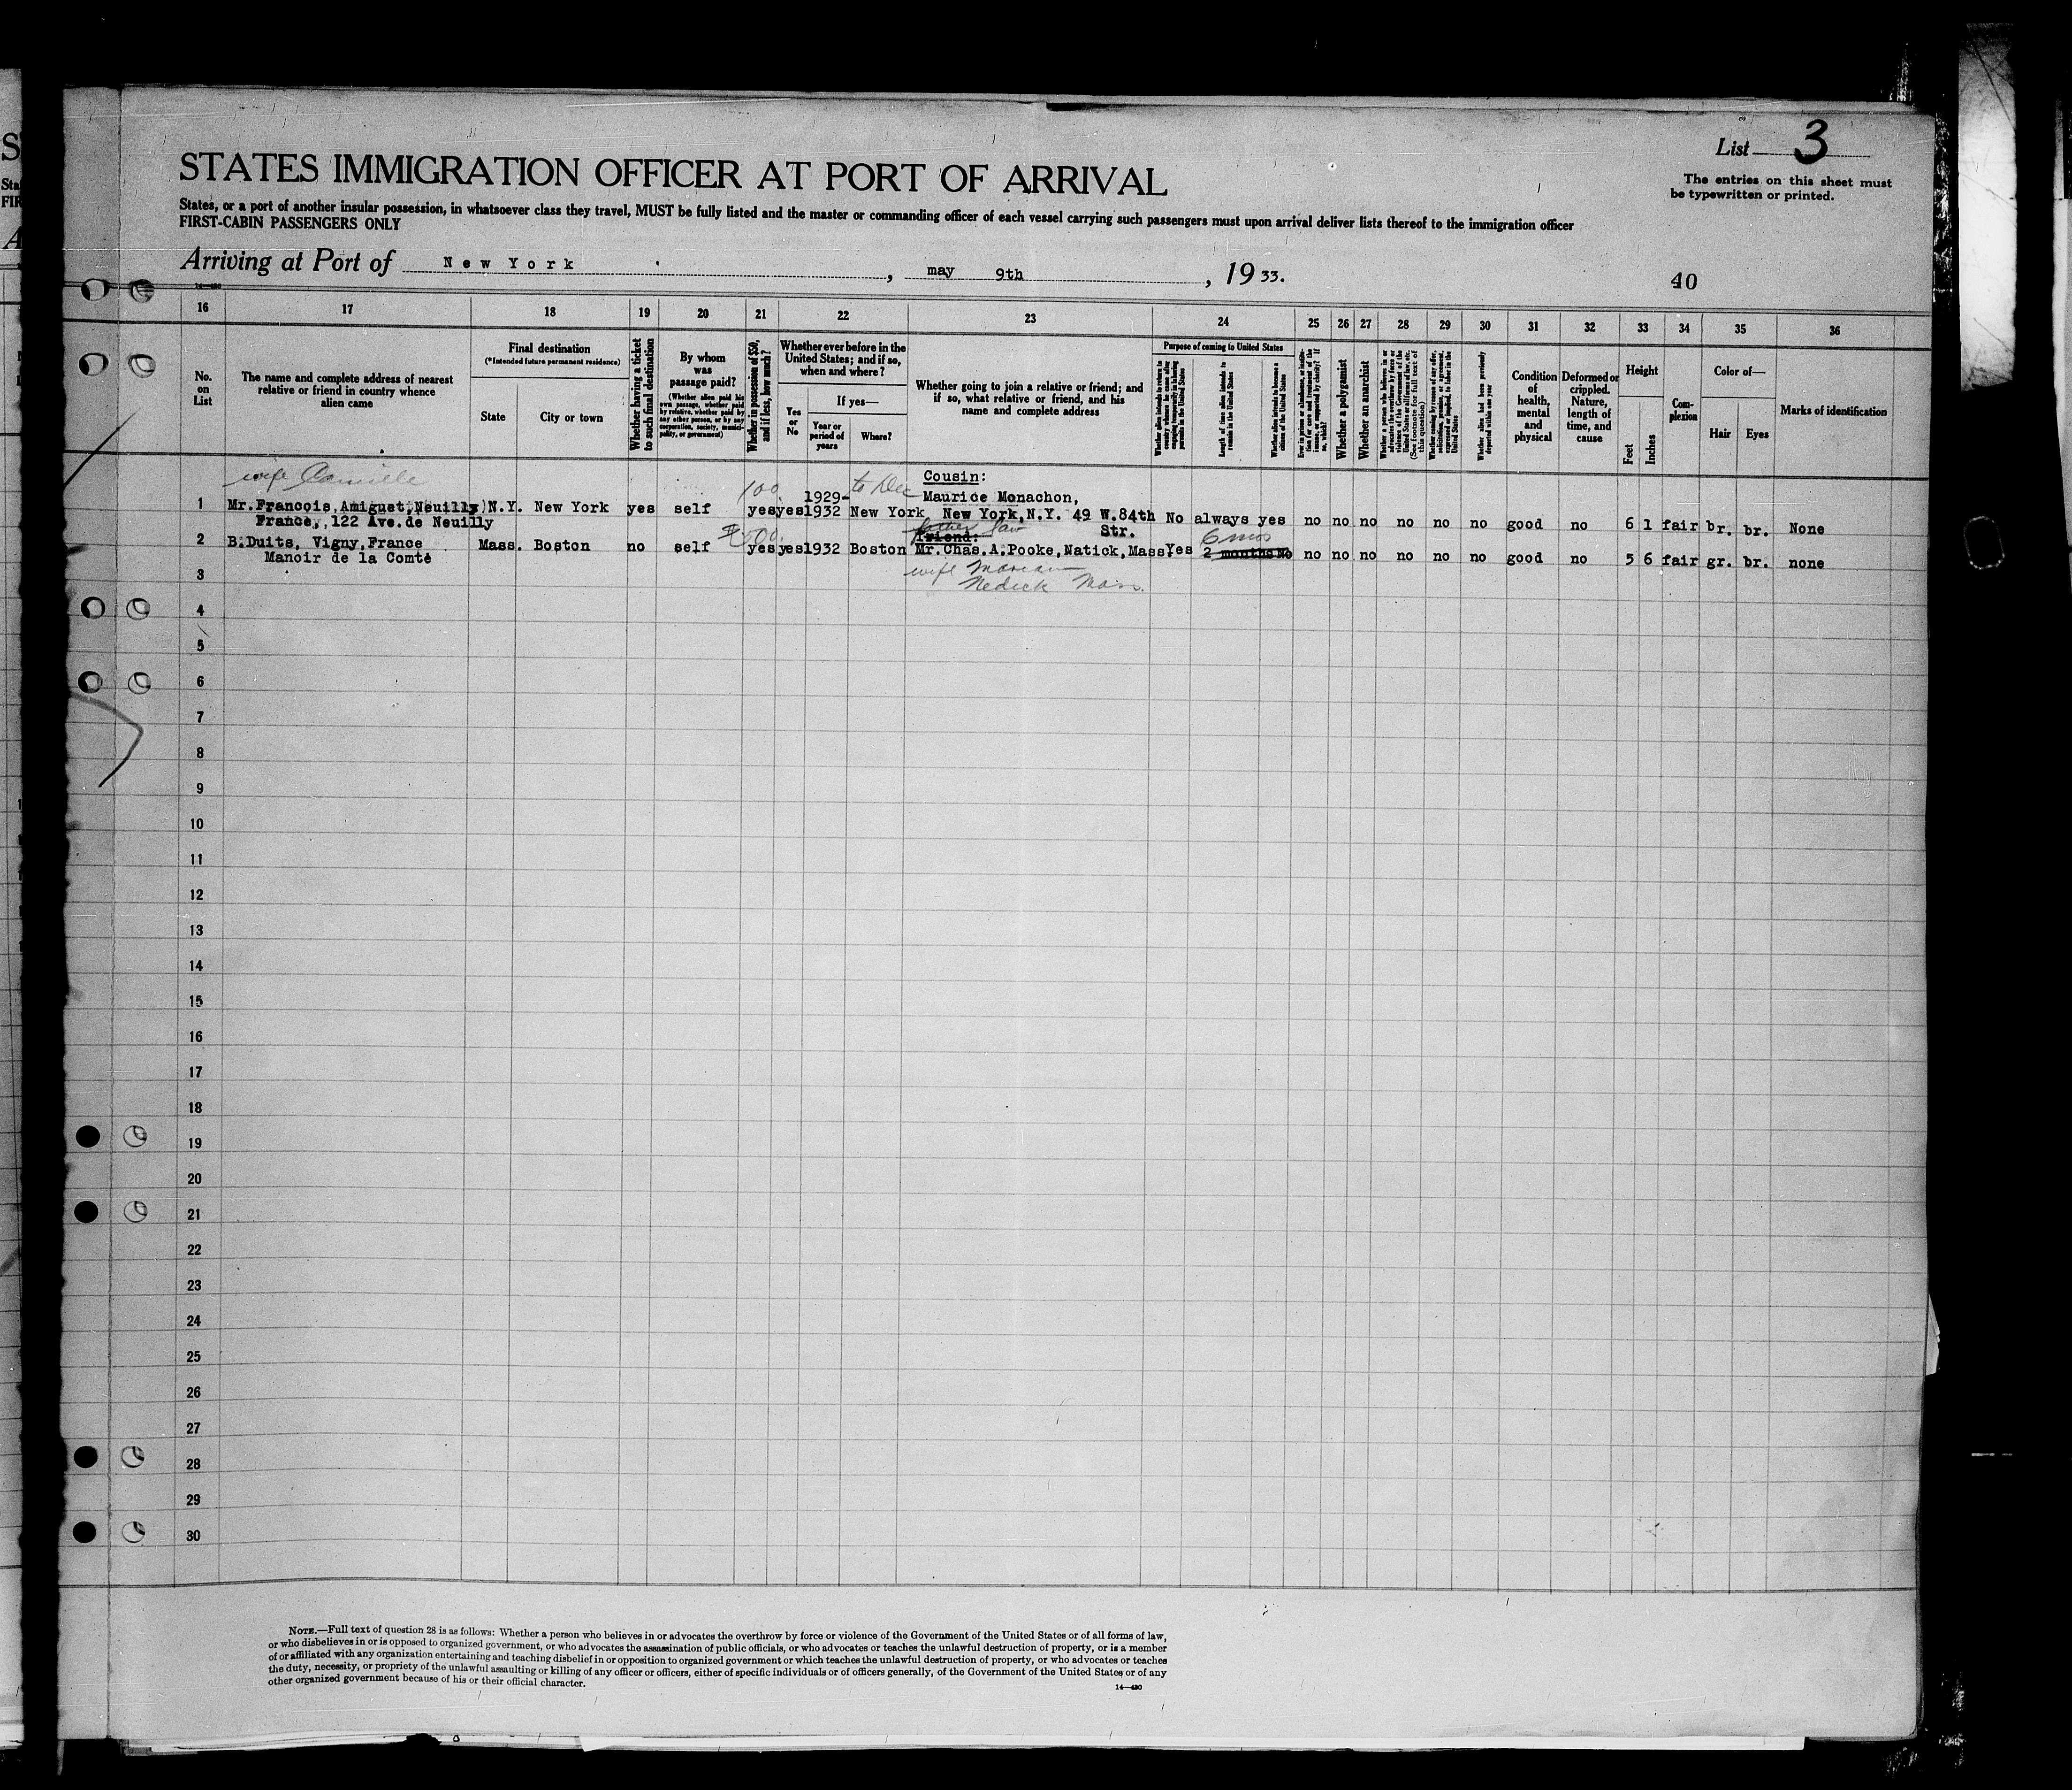 List 3
The entries on this sheet must
be typewritten or printed.
STATES IMMIGRATION OFFICER AT PORT OF ARRIVAL
States, or a port of another insular possession, in whatsoever class they travel, MUST be fully listed and the master or commanding officer of each vessel carrying such passengers must upon arrival deliver lists thereof to the immigration officer
FIRST-CABIN PASSENGERS ONLY
Arriving at Port of New York, may 9th, 1933.
40
16 17 18 19 20 21 22 23 24 25 26 27 28 29 30 31 32 33 34 35 36
No.
on
List
The name and complete address of nearest
relative or friend in country whence
alien came
Final destination
(*Intended future permanent residence)
State
City or town
Whether having a ticket
to such final destination
By whom
was
passage paid?
(Whether alien paid his
own passage, whether paid
by relative, whether paid by
any other person, or by any
corporation, society, munici-
pality, or government)
Whether in possession of $50,
and if less, how much?
Whether ever before in the
United States; and if so,
when and where?
Yes
or
No
If yes—
Year or
period of
years
Where?
Whether going to join a relative or friend; and
if so, what relative or friend, and his
name and complete address
Purpose of coming to United States
Whether alien intends to return to
country whence he came after
engaging temporarily in laboring
pursuits in the United States
Length of time alien intends to
remain in the United States
Whether alien intends to become a
citizen of the United States
Ever in prison or almshouse, or institu-
tion for care and treatment of the
insane, or supported by charity? If
so, which?
Whether a polygamist
Whether an anarchist
Whether a person who believes in or
advocates the overthrow by force or
violence of the Government of the
United States or all forms of law, etc.
(See footnote for full text of
this question)
Whether coming by reason of any offer,
solicitation, promise, or agreement,
expressed or implied, to labor in the
United States
Whether alien had been previously
deported within one year
Condition
of
health,
mental
and
physical
Deformed or
crippled.
Nature,
length of
time, and
cause
Height
Feet
Inches
Com-
plexion
Color of—
Hair
Eyes
Marks of identification
wife Camille
100. to Dec
Cousin:
1929- Maurice Monachon,
1 Mr.Francois,Amiguet,Neuilly)N.Y. New York yes self yes yes 1932 New York New York,N.Y. 49 W.84th No always yes no no no no no no good no 6 1 fair br. br. None
France,,122 Ave.de Neuilly Str.
father law
Friend: 6 mos
2 B.Duits, Vigny,France Mass. Boston no self yes yes 1932 Boston Mr.Chas.A.Pooke,Natick,Mass. Yes 2 months No no no no no no no good no 5 6 fair gr. br. none
Manoir de la Comté
wife Marian
Nedick Mass.
3
4
5
6
7
8
9
10
11
12
13
14
15
16
17
18
19
20
21
22
23
24
25
26
27
28
29
30
NOTE.—Full text of question 28 is as follows: Whether a person who believes in or advocates the overthrow by force or violence of the Government of the United States or of all forms of law,
or who disbelieves in or is opposed to organized government, or who advocates the assassination of public officials, or who advocates or teaches the unlawful destruction of property, or is a member
of or affiliated with any organization entertaining and teaching disbelief in or opposition to organized government or which teaches the unlawful destruction of property, or who advocates or teaches
the duty, necessity, or propriety of the unlawful assaulting or killing of any officer or officers, either of specific individuals or of officers generally, of the Government of the United States or of any
other organized government because of his or their official character.
14—480